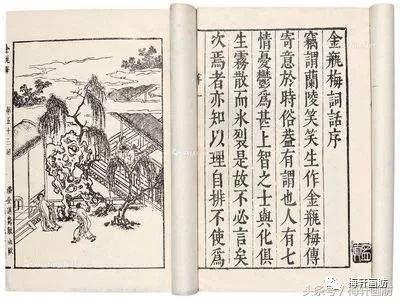 金瓶梅詞話序
竊謂蘭陵笑笑生作金瓶梅傳
寄意於時俗葢有謂也人有七
情憂鬱爲甚上智之士與化俱
生霧散而氷裂是故不必言矣
次焉者亦知以理自排不使爲
序
金瓶梅
第五十三回
海轩画舫
头条号/海轩画舫